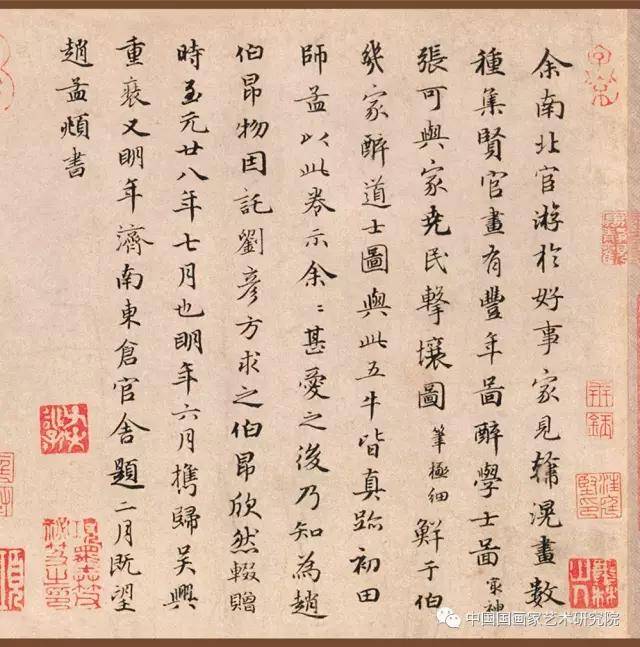 余南北官游於好事家見韓滉畫數
種集賢官畫有豐年啚醉學士啚冣神
張可與家堯民擊壤圖筆極細鮮于伯
幾家醉道士圖與此五牛皆真跡初田
師孟以此卷示余〻甚愛之後乃知為趙
伯昂物因託劉彥方求之伯昂欣然輟贈
時至元廿八年七月也明年六月攜歸吳興
重裝又明年濟南東倉官舍題二月既望
趙孟頫書
中国国画家艺术研究院